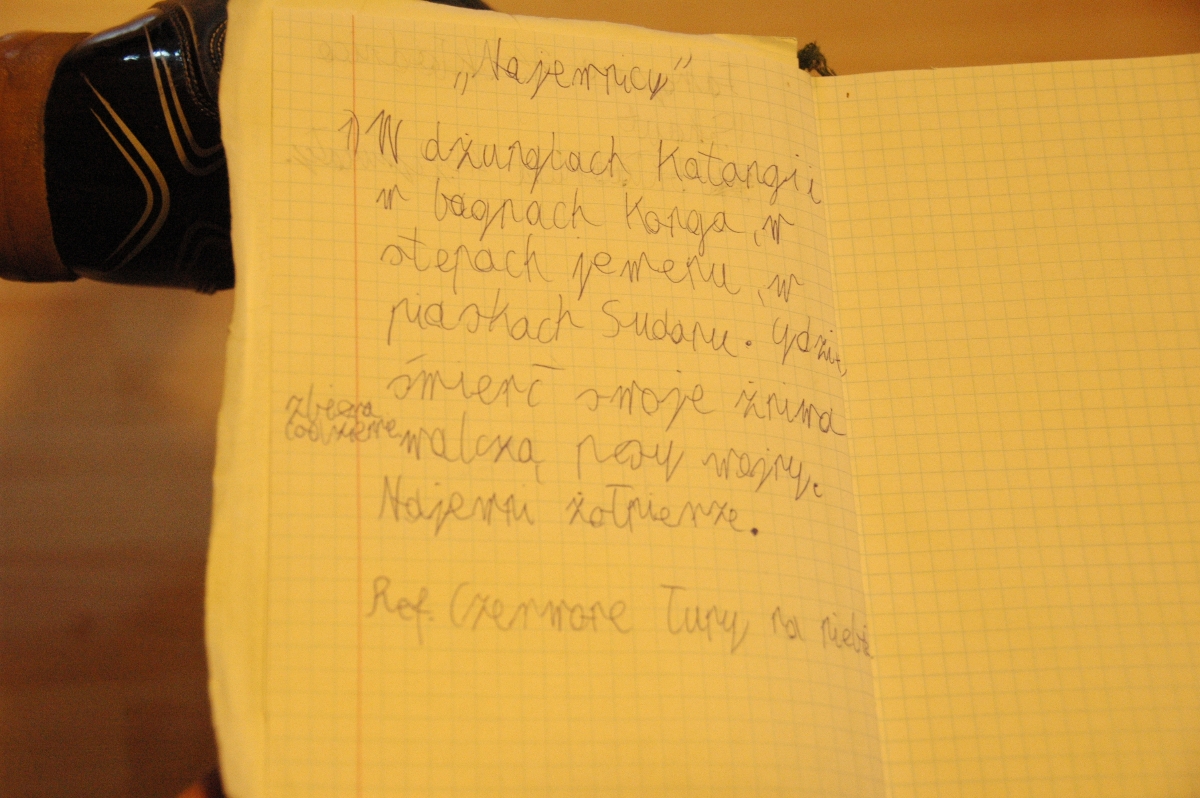 „Najemnicy"
1) W dżunglach Katangi i
w bagnach Konga, w
stepach jemenu, w
piaskach Sudanu. Gdzie,
śmierć swoje żniwa
zbiera
codzienne walczą psy wojny.
Najemni żołnierze.
Ref. Czerwone łuny na niebie